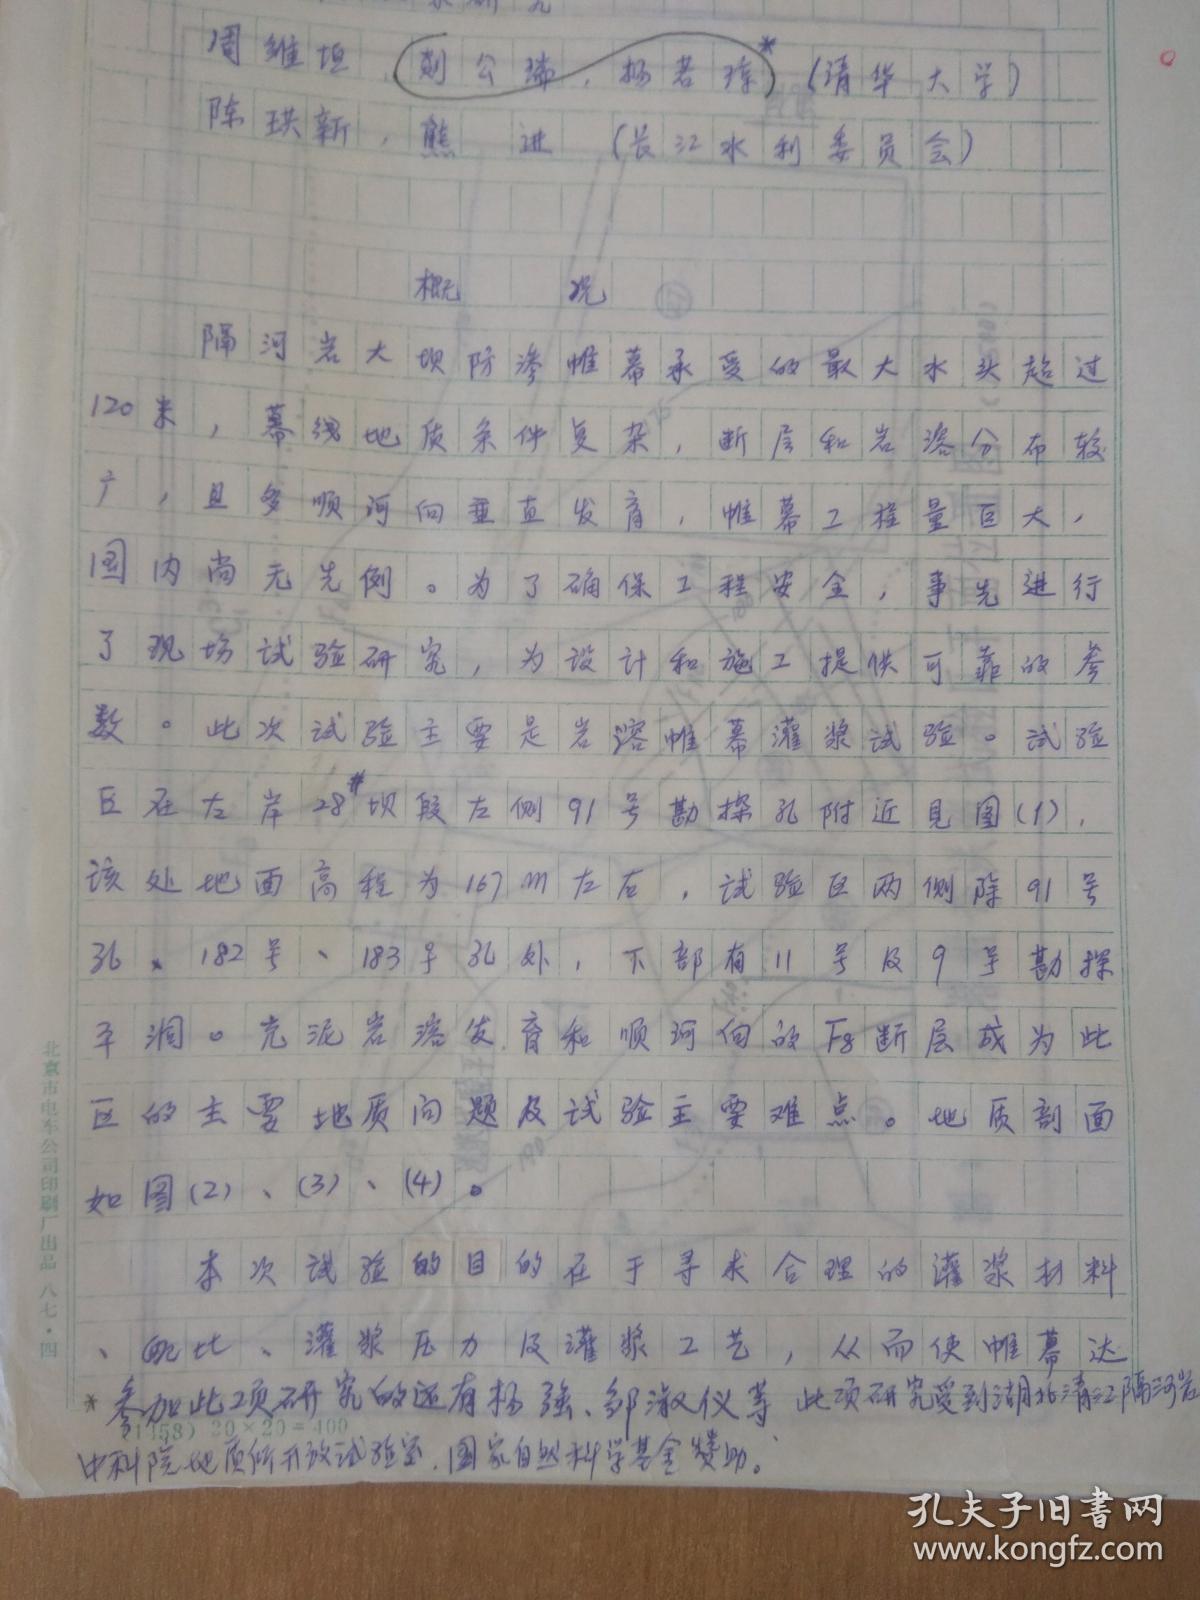 研究
周维垣,刘公瑞,杨若琼*(清华大学)
陈珙新,熊 进(长江水利委员会)
概 况
隔河岩大坝防渗帷幕承受的最大水头超过
120米,幕线地质条件复杂,断层和岩溶分布较
广,且多顺河向垂直发育,帷幕工程量巨大,
国内尚无先例。为了确保工程安全,事先进行
了现场试验研究,为设计和施工提供可靠的参
数。此次试验主要是岩溶帷幕灌浆试验。试验
区在左岸28#坝段左侧91号勘探孔附近见图(1),
该处地面高程为167m左右,试验区两侧除91号
孔、182号、183号孔处,下部有11号及9号勘探
平洞。充泥岩溶发育和顺河向的F8断层成为此
区的主要地质问题及试验主要难点。地质剖面
如图(2)、(3)、(4)。
本次试验的目的在于寻求合理的灌浆材料
、配比、灌浆压力及灌浆工艺,从而使帷幕达
*参加此项研究的还有杨强、邹淑仪等 此项研究受到湖北清江隔河岩
(1458)20×20=400
中科院地质所开放试验室,国家自然科学基金赞助。
北京市电车公司印刷厂出品 八七·四
孔夫子旧书网
www.kongfz.com